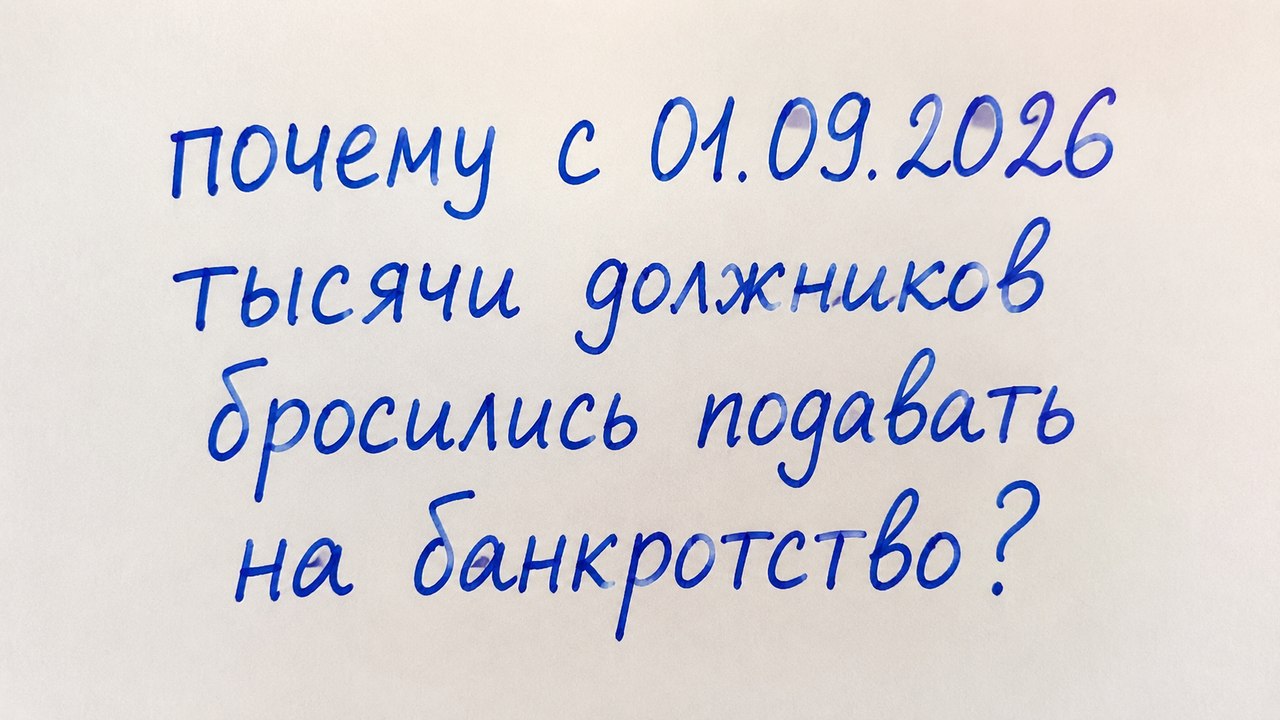 почему с 01.09.2026
тысячи должников
бросились подавать
на банкротство?